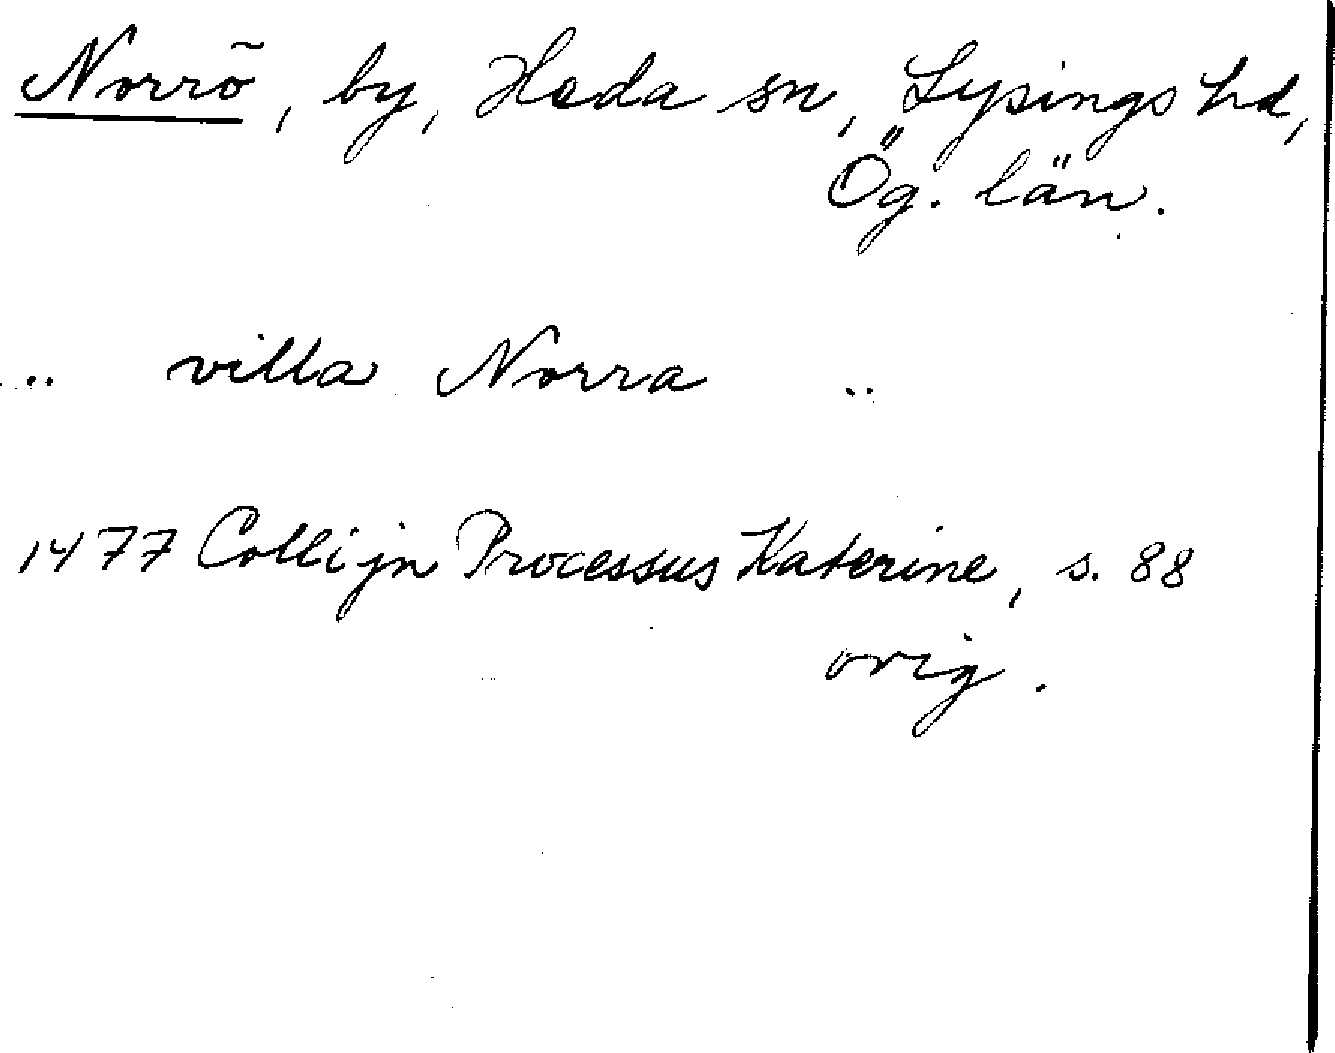 Norrö, by, Heda sn, Lysings hd,
Ög. län.
... villa Norra ..
1477 Collijn Processus Katerine, s. 88
orig.